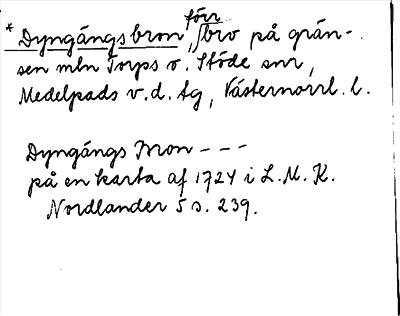 * Dyngångsbron, förr bro på grän-
sen mln Torps o. Stöde snr,
Medelpads v. d. tg, Västernorrl. l.
Dyngångs Bron - - -
på en karta af 1724 i L. M. K.
Nordlander 5 s. 239.